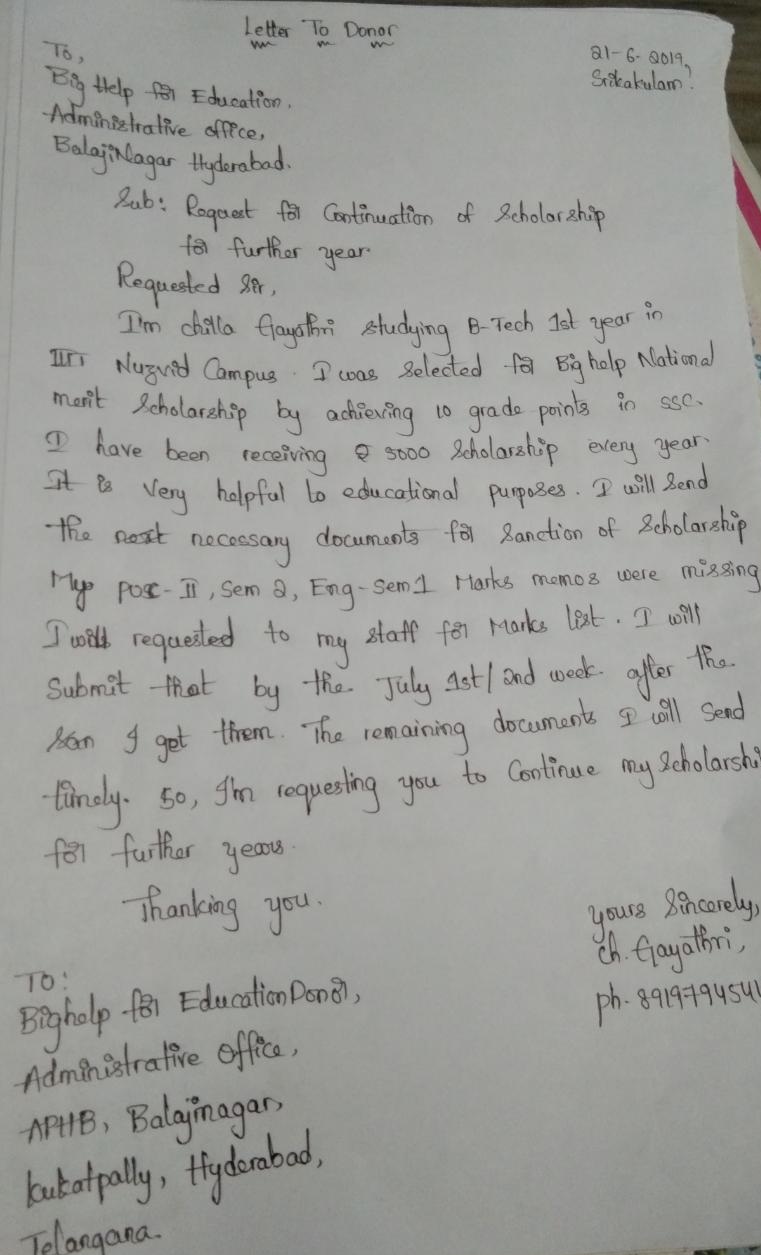 Letter To Donor
21-6-2019,
Srikakulam.
To,
Big Help for Education,
Administrative office,
BalajiNagar Hyderabad.
Sub: Request for Continuation of Scholarship
for further year.
Requested Sir,
I'm chilla Gayathri studying B-Tech 1st year in
IIIT Nuzvid Campus. I was Selected for Big help National
merit Scholarship by achieving 10 grade points in SSC.
I have been receiving ₹ 5000 Scholarship every year.
It is very helpful to educational purposes. I will Send
the necessary documents for Sanction of Scholarship
My PUC-II, Sem 2, Eng-Sem1 Marks memos were missing
I requested to my staff for Marks list. I will
Submit that by the July 1st/2nd week. after the
I get them. The remaining documents I will Send
timely. So, I'm requesting you to Continue my Scholarshi
for further years.
Thanking you.
yours Sincerely,
ch. Gayathri,
ph. 8919794541
TO:
Bighelp for Education Donor,
Administrative Office,
APHB, Balajinagar,
kukatpally, Hyderabad,
Telangana.